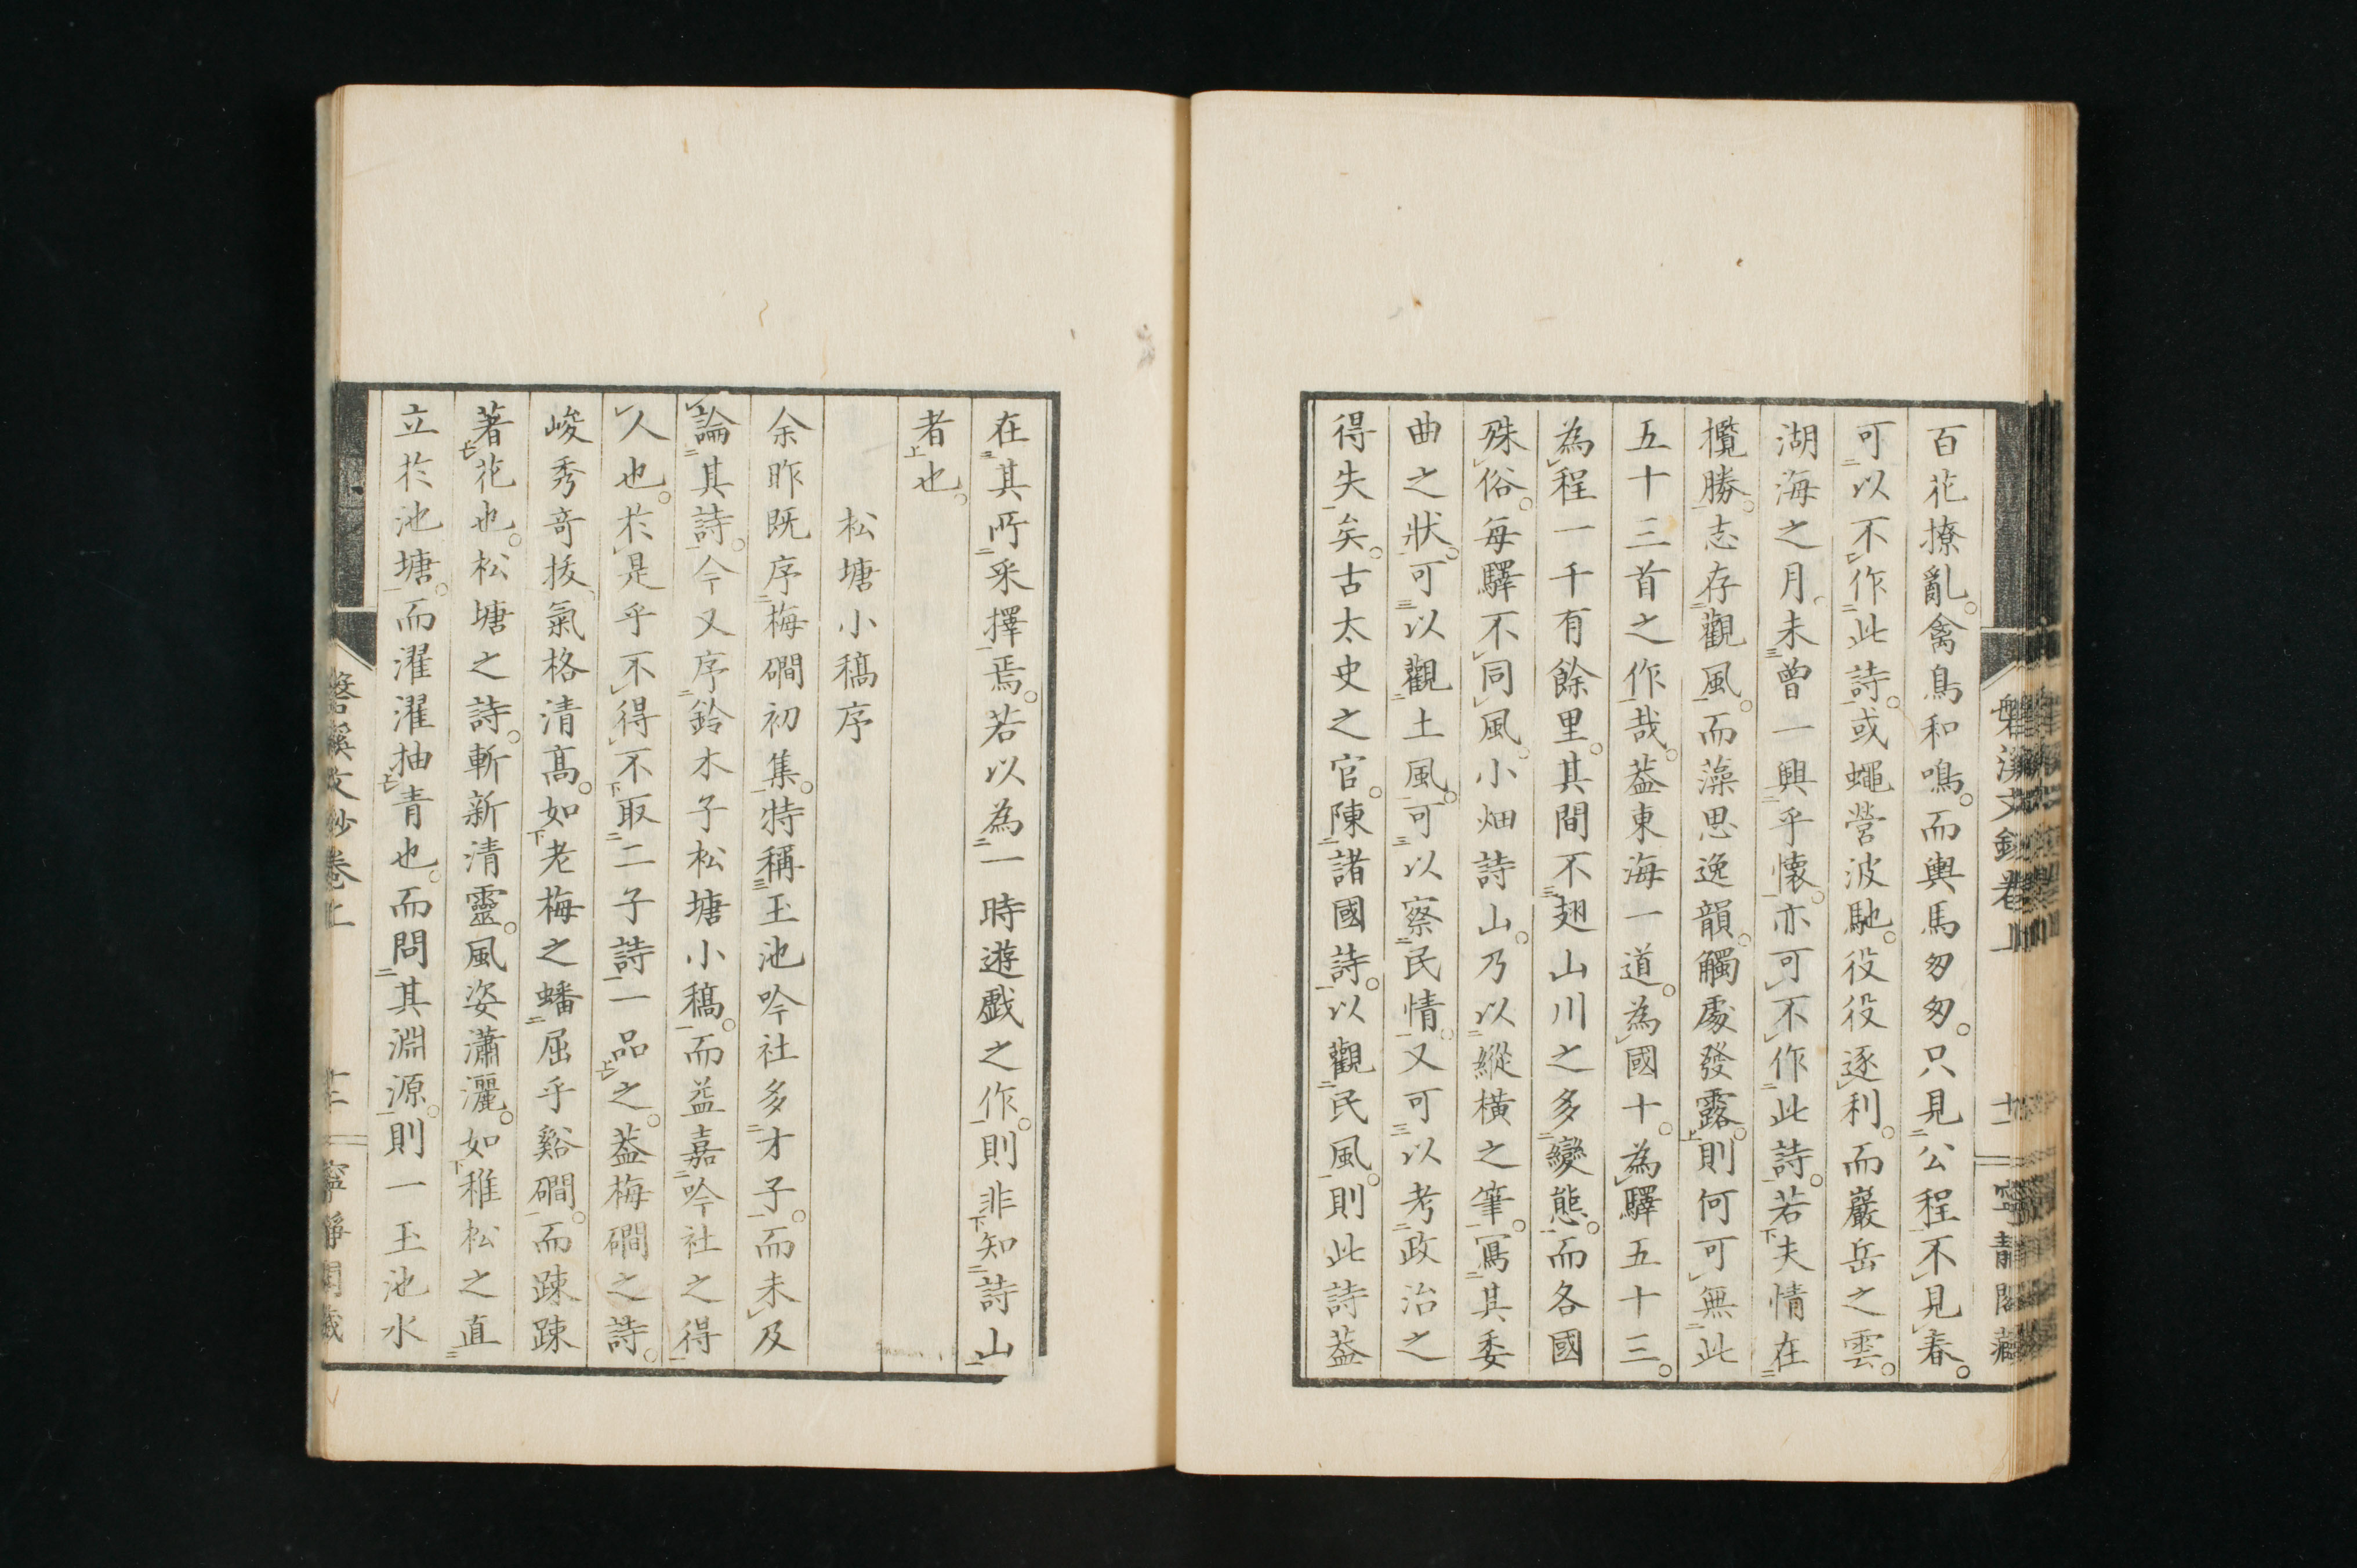 百花撩亂。禽鳥和鳴。而輿馬匆匆。只見公程不見春。
可以不作此詩。或蠅營波馳。役役逐利。而巖岳之雲。
湖海之月。未曾一興乎懷。亦可不作此詩。若夫情在
欖勝。志存觀風。而藻思逸韻。觸處發露。則何可無此
五十三首之作哉。蓋東海一道。為國十。為驛五十三。
為程一千有餘里。其間不翅山川之多變態。而各國
殊俗。每驛不同風。小畑詩山。乃以縱橫之筆。寫其委
曲之狀。可以觀土風。可以察民情。又可以考政治之
得失矣。古太史之官。陳諸國詩。以觀民風。則此詩蓋
磐溪文鈔卷上 十一 寧靜閣藏
在其所采擇焉。若以為一時遊戲之作。則非知詩山
者也。
松塘小稿序
余昨既序梅磵初集。特稱玉池吟社多才子。而未及
論其詩。今又序鈴木子松塘小稿。而益嘉吟社之得
人也。於是乎不得不取二子詩一品之。蓋梅磵之詩。
峻秀奇拔、氣格清高。如老梅之蟠屈乎谿磵。而疎疎
著花也。松塘之詩。斬新清靈。風姿瀟灑。如稚松之直
立於池塘。而濯濯抽青也。而問其淵源。則一玉池水
磐溪文鈔卷上 十二 寧靜閣藏